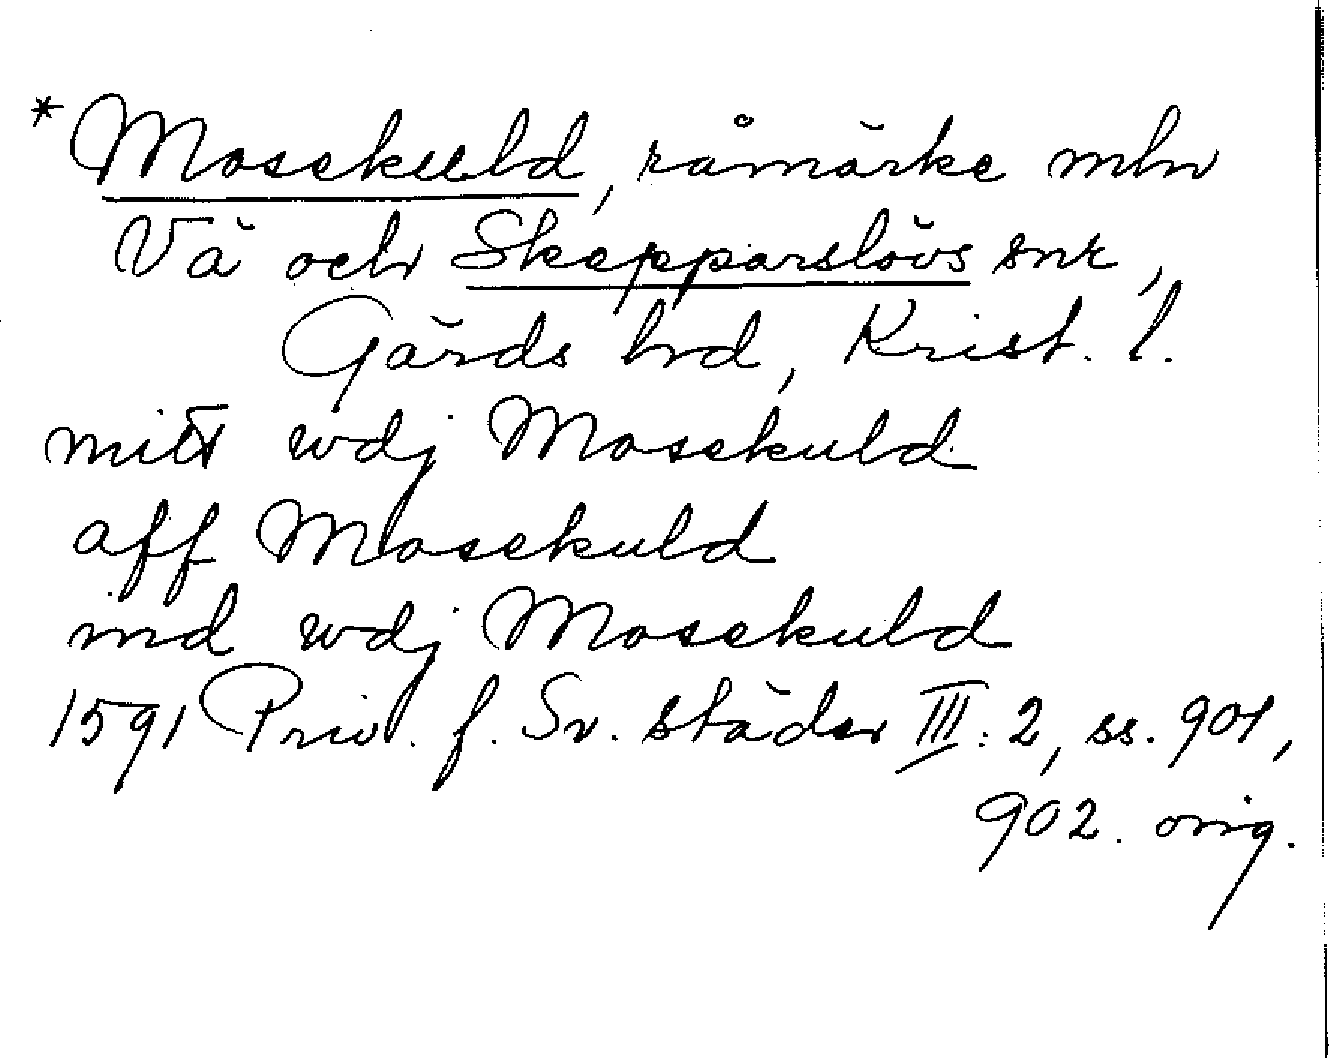 *Mosekuld, råmärke mln
Vä och Skepparslövs snr,
Gärds hd, Krist. l.
mitt wdj Mosekuld
aff Mosekuld
ind wdj Mosekuld
1591 Priv. f. Sv. städer III:2, ss. 901,
902. orig.